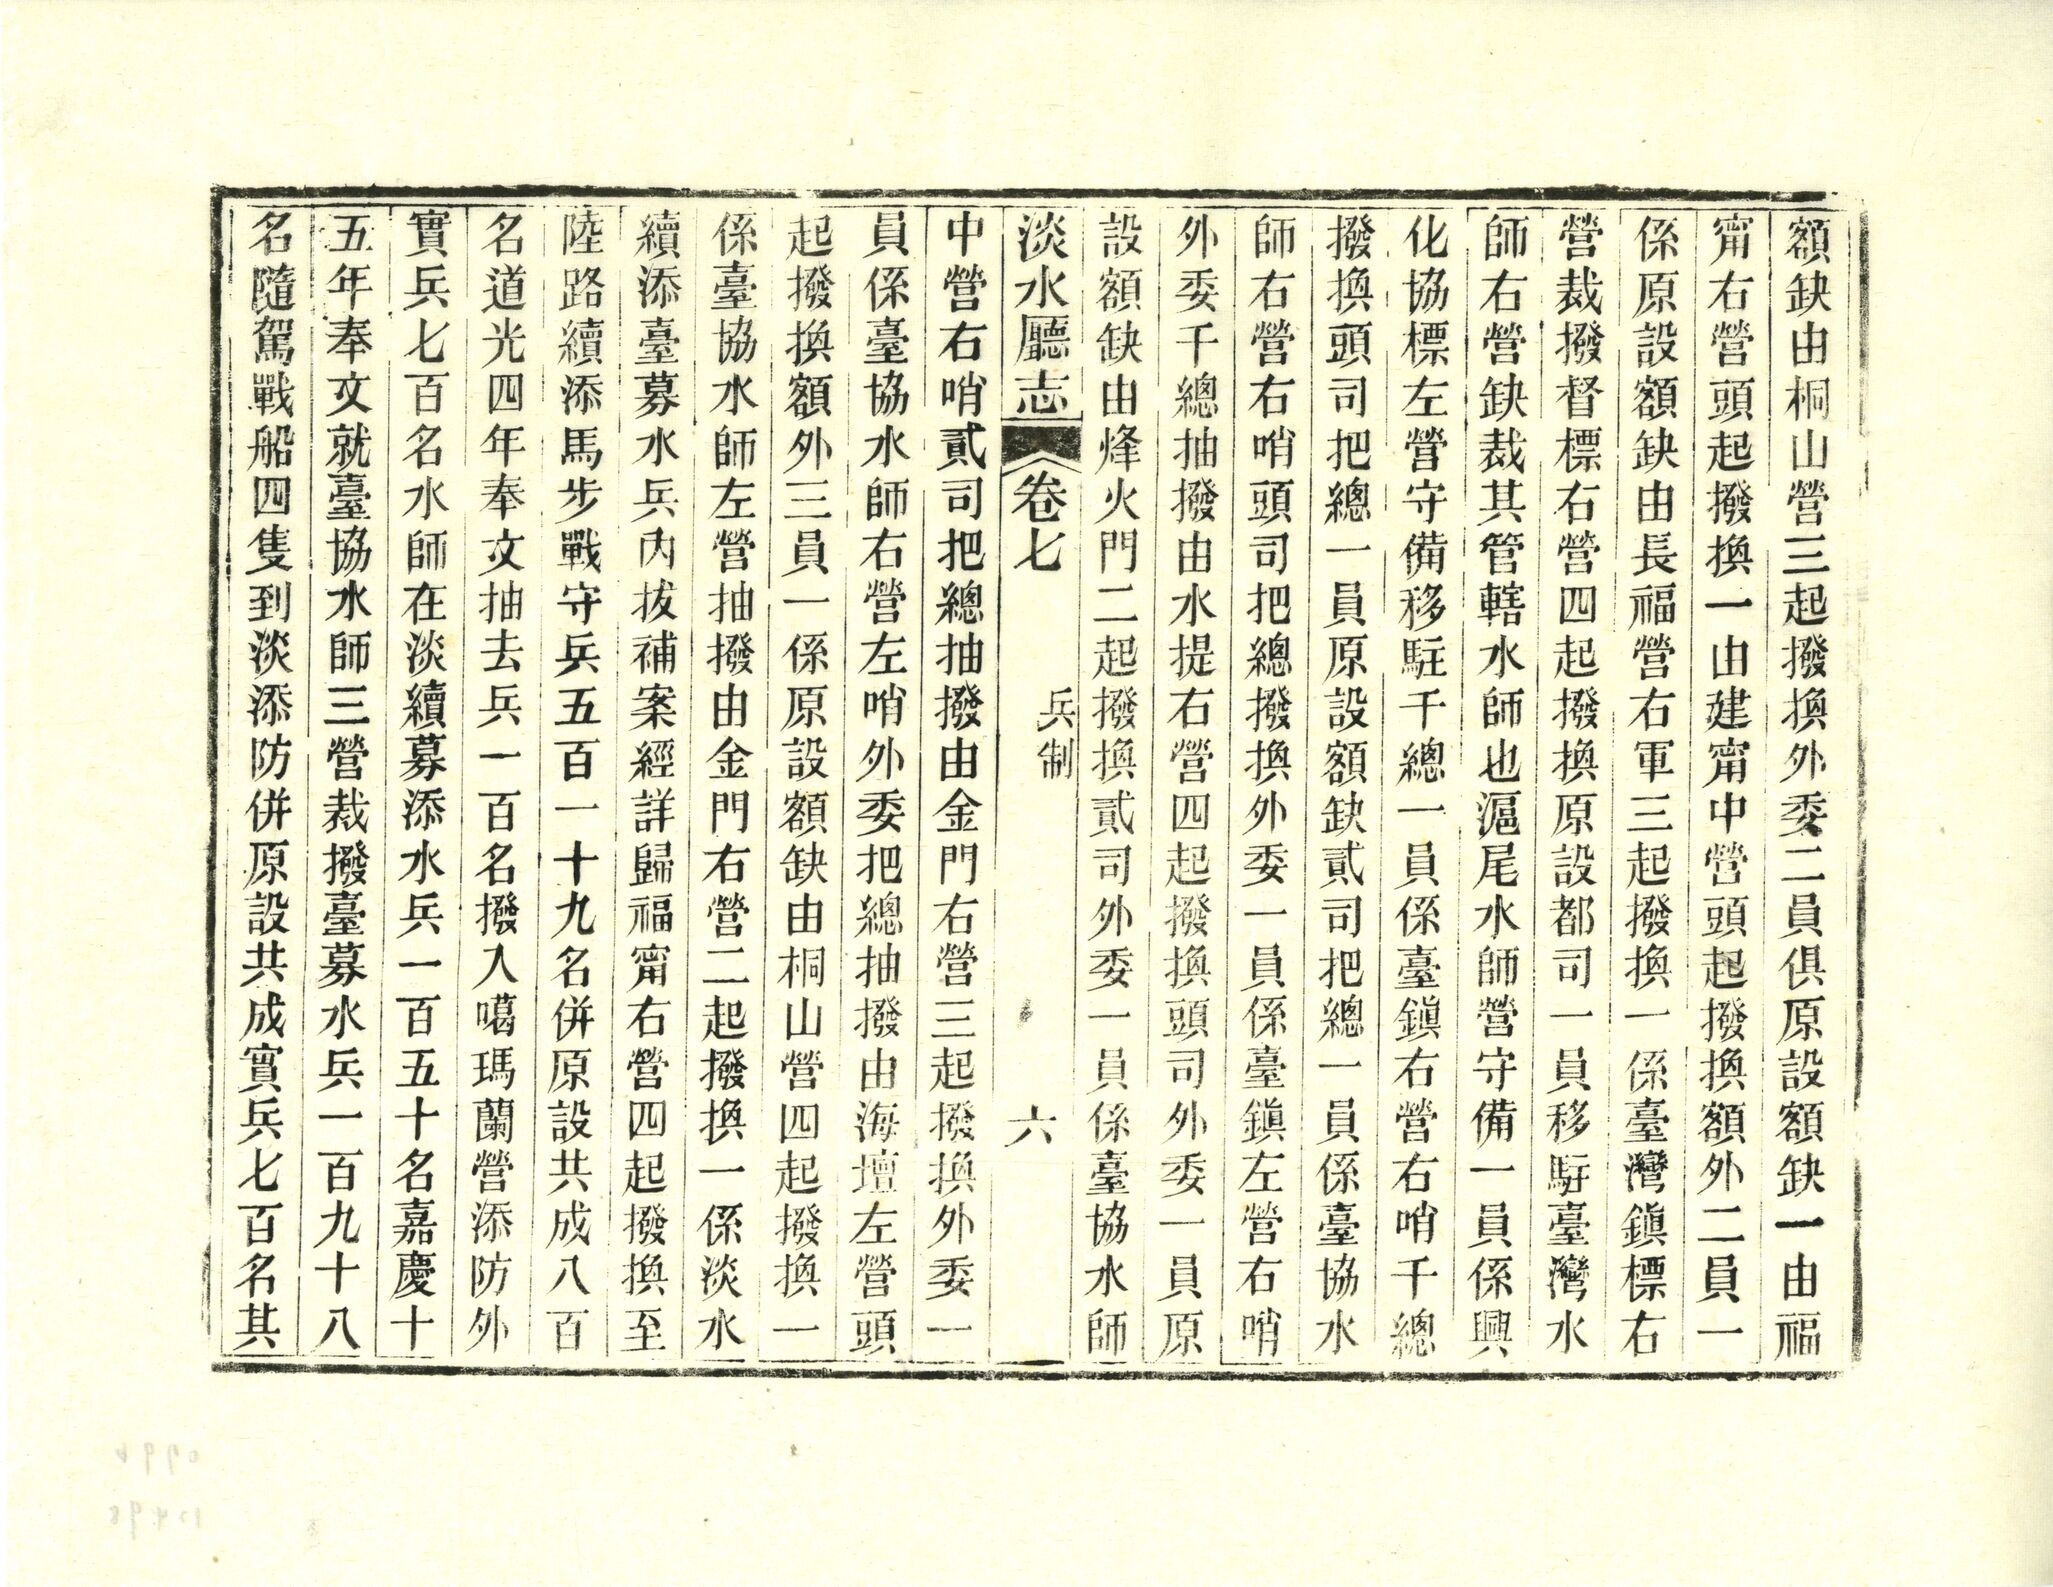 額缺由桐山營三起撥換外委二員俱原設額缺一由福
甯右營頭起撥換一由建甯中營頭起撥換額外二員一
係原設額缺由長福營右軍三起撥換一係臺灣鎭標右
營裁撥督標右營四起撥換原設都司一員移駐臺灣水
師右營缺裁其管轄水師也滬尾水師營守備一員係興
化協標左營守備移駐千總一員係臺鎭右營右哨千總
撥換頭司把總一員原設額缺貳司把總一員係臺協水
師右營右哨頭司把總撥換外委一員係臺鎭左營右哨
外委千總抽撥由水提右營四起撥換頭司外委一員原
設額缺由烽火門二起撥換貳司外委一員係臺協水師
淡水廳志 卷七 兵制 六
中營右哨貳司把總抽撥由金門右營三起撥換外委一
員係臺協水師右營左哨外委把總抽撥由海壇左營頭
起撥換額外三員一係原設額缺由桐山營四起撥換一
係臺協水師左營抽撥由金門右營二起撥換一係淡水
續添臺募水兵內拔補案經詳歸福甯右營四起撥換至
陸路續添馬步戰守兵五百一十九名併原設共成八百
名道光四年奉文抽去兵一百名撥入噶瑪蘭營添防外
實兵七百名水師在淡續募添水兵一百五十名嘉慶十
五年奉文就臺協水師三營裁撥臺募水兵一百九十八
名隨駕戰船四隻到淡添防併原設共成實兵七百名其